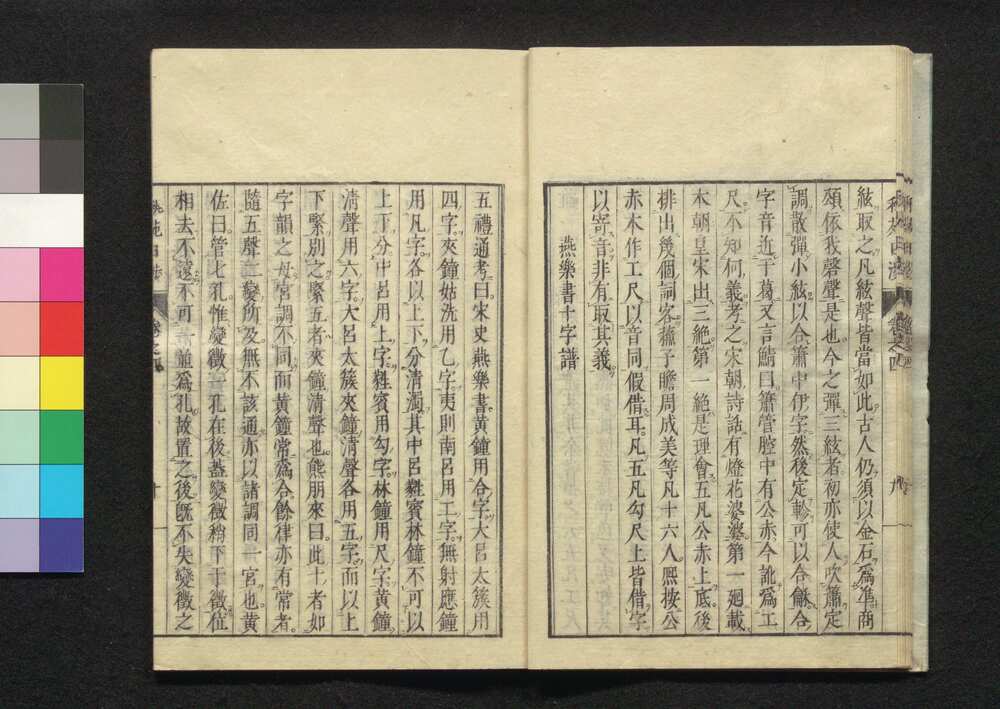 絃取之凡絃聲皆當如此古人仍須以金石爲準商
頌依我磬聲是也今之彈三絃者初亦使人吹簫定
調散彈小絃以合簫中伊字然後定軫可以合龢合
字音近于葛又言鯖曰簫管腔中有公赤今訛爲工
尺不知何義考之宋朝詩話有燈花婆婆第一廻載
本朝皇宋出三絶第一絶是理會五凡公赤上底後
排出幾個詞客蘓子瞻周成美等凡十六人愿按公
赤木作工尺以音同假借耳凡五凡勾尺上皆借字
以寄音非有取其義
燕樂書十字譜
五禮通考曰宋史燕樂書黃鐘用合字大呂太簇用
四字夾鐘姑洗用乙字夷則南呂用工字無射應鐘
用凡字各以上下分淸濁其中呂蕤賓林鐘不可以
上下分中呂用上字蕤賓用勾字林鐘用尺字黃鐘
淸聲用六字大呂太簇夾鐘淸聲各用五字而以上
下緊別之緊五者夾鐘淸聲也熊朋來曰此十者如
字韻之母宮調不同而黃鐘常爲合餘律亦有常者
隨五聲二變所及無不該通亦以諸調同一宮也黃
佐曰管七孔惟變徵一孔在後蓋變徵稍下于徵位
相去不遠不可並爲孔故置之後旣不失變徵之